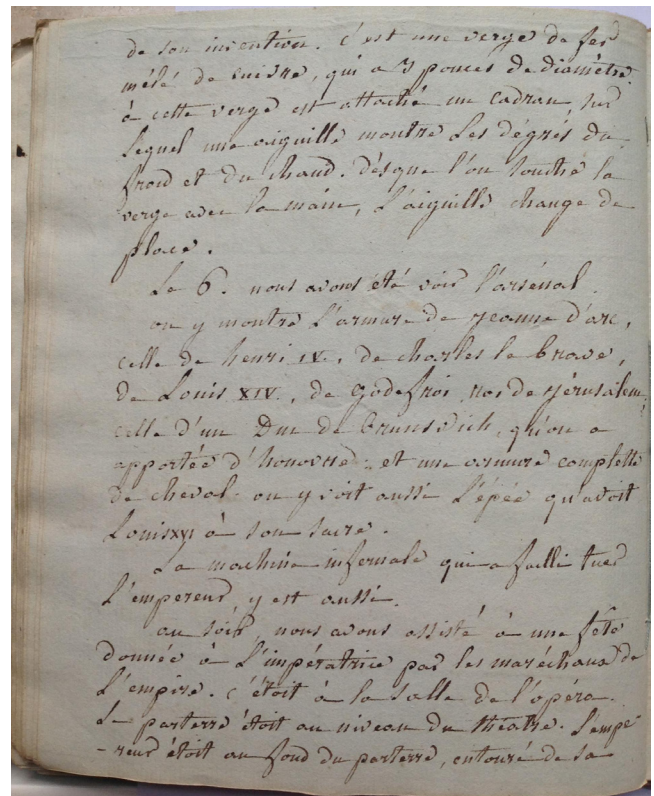 de son invention. c'est une verge de fer
mêlé de cuivre, qui a 3 pouces de diamétre.
à cette verge est attaché un cadran, sur
lequel une aiguille montre les dégrés du
froid et du chaud. désque l'on touche la
verge avec la main, l'aiguille change de
place.
Le 6. nous avons été voir l'arsénal.
on y montre l'armure de jeanne d'arc,
celle de henri IV., de charles le brave,
de Louis XIV., de godefroi, roi de jérusalem,
celle d'un Duc de brunswich, qu'on a
apportée d'hanovre: et une armure complette
de cheval. on y voit aussi l'épée qu'avoit
Louis XVI à son sacre.
La machine infernale qui a failli tuer
l'empereur y est aussi.
au soir, nous avons assisté à une fête
donnée à l'impératrice par les maréchaux de
l'empire. c'étoit à la salle de l'opéra.
Le parterre étoit au niveau du théatre. l'empe-
-reur étoit au fond du parterre, entouré de sa